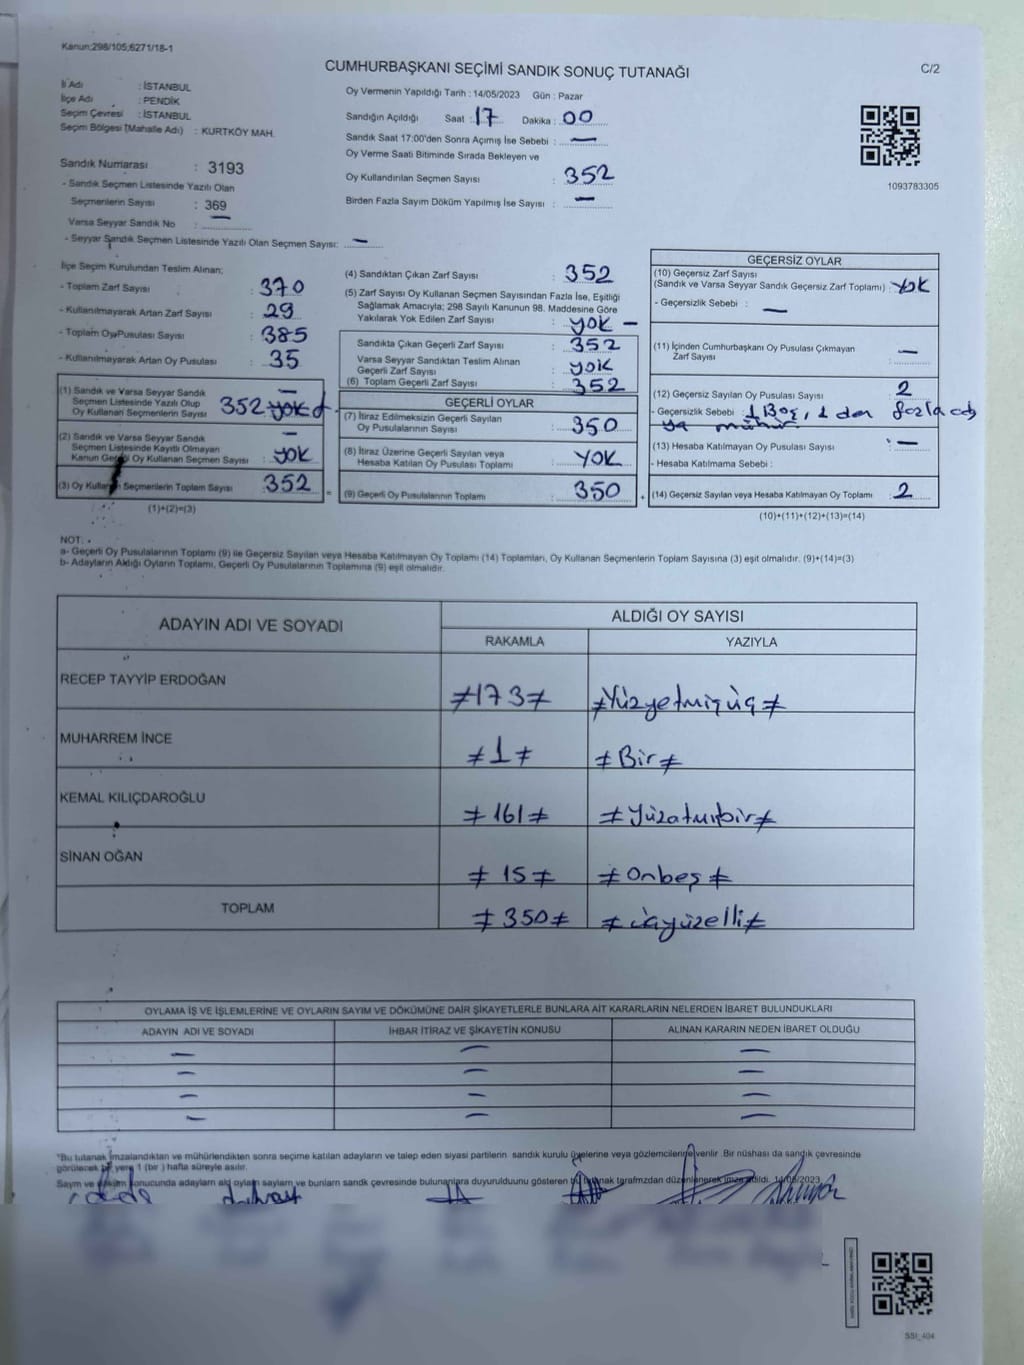 Kanun:298/105;6271/18-1
C/2
CUMHURBAŞKANI SEÇİMİ SANDIK SONUÇ TUTANAĞI
İl Adı : İSTANBUL
İlçe Adı : PENDİK
Seçim Çevresi : İSTANBUL
Seçim Bölgesi (Mahalle Adı) : KURTKÖY MAH.
Sandık Numarası : 3193
- Sandık Seçmen Listesinde Yazılı Olan
Seçmenlerin Sayısı : 369
Varsa Seyyar Sandık No : —
- Seyyar Sandık Seçmen Listesinde Yazılı Olan Seçmen Sayısı: —
Oy Vermenin Yapıldığı Tarih : 14/05/2023 Gün : Pazar
Sandığın Açıldığı Saat : 17 Dakika : 00
Sandık Saat 17:00'den Sonra Açımış İse Sebebi : —
Oy Verme Saati Bitiminde Sırada Bekleyen ve
Oy Kullandırılan Seçmen Sayısı : 352
Birden Fazla Sayım Döküm Yapılmış İse Sayısı : —
1093783305
İlçe Seçim Kurulundan Teslim Alınan;
- Toplam Zarf Sayısı : 370
- Kullanılmayarak Artan Zarf Sayısı : 29
- Toplam Oy Pusulası Sayısı : 385
- Kullanılmayarak Artan Oy Pusulası : 35
(1) Sandık ve Varsa Seyyar Sandık
Seçmen Listesinde Yazılı Olup
Oy Kullanan Seçmenlerin Sayısı 352 yok
(2) Sandık ve Varsa Seyyar Sandık
Seçmen Listesinde Kayıtlı Olmayan
Kanun Gereği Oy Kullanan Seçmen Sayısı yok
(3) Oy Kullanan Seçmenlerin Toplam Sayısı 352
(1)+(2)=(3)
(4) Sandıktan Çıkan Zarf Sayısı : 352
(5) Zarf Sayısı Oy Kullanan Seçmen Sayısından Fazla İse, Eşitliği
Sağlamak Amacıyla; 298 Sayılı Kanunun 98. Maddesine Göre
Yakılarak Yok Edilen Zarf Sayısı : yok —
Sandıkta Çıkan Geçerli Zarf Sayısı : 352
Varsa Seyyar Sandıktan Teslim Alınan
Geçerli Zarf Sayısı : yok
(6) Toplam Geçerli Zarf Sayısı : 352
GEÇERLİ OYLAR
(7) İtiraz Edilmeksizin Geçerli Sayılan
Oy Pusulalarının Sayısı : 350
(8) İtiraz Üzerine Geçerli Sayılan veya
Hesaba Katılan Oy Pusulası Toplamı : YOK
= (9) Geçerli Oy Pusulalarının Toplamı : 350
GEÇERSİZ OYLAR
(10) Geçersiz Zarf Sayısı
(Sandık ve Varsa Seyyar Sandık Geçersiz Zarf Toplamı) : yok
- Geçersizlik Sebebi : —
(11) İçinden Cumhurbaşkanı Oy Pusulası Çıkmayan
Zarf Sayısı : —
(12) Geçersiz Sayılan Oy Pusulası Sayısı : 2
- Geçersizlik Sebebi : 1 Boş, 1 den fazla ada
ya mühür
(13) Hesaba Katılmayan Oy Pusulası Sayısı : —
- Hesaba Katılmama Sebebi :
+ (14) Geçersiz Sayılan veya Hesaba Katılmayan Oy Toplamı : 2
(10)+(11)+(12)+(13)=(14)
NOT:
a- Geçerli Oy Pusulalarının Toplamı (9) ile Geçersiz Sayılan veya Hesaba Katılmayan Oy Toplamı (14) Toplamları, Oy Kullanan Seçmenlerin Toplam Sayısına (3) eşit olmalıdır. (9)+(14)=(3)
b- Adayların Aldığı Oyların Toplamı, Geçerli Oy Pusulalarının Toplamına (9) eşit olmalıdır.
ADAYIN ADI VE SOYADI
ALDIĞI OY SAYISI
RAKAMLA YAZIYLA
RECEP TAYYİP ERDOĞAN ≠173≠ ≠Yüzyetmişüç≠
MUHARREM İNCE ≠1≠ ≠Bir≠
KEMAL KILIÇDAROĞLU ≠161≠ ≠Yüzatmışbir≠
SİNAN OĞAN ≠15≠ ≠Onbeş≠
TOPLAM ≠350≠ ≠üçyüzelli≠
OYLAMA İŞ VE İŞLEMLERİNE VE OYLARIN SAYIM VE DÖKÜMÜNE DAİR ŞİKAYETLERLE BUNLARA AİT KARARLARIN NELERDEN İBARET BULUNDUKLARI
ADAYIN ADI VE SOYADI İHBAR İTİRAZ VE ŞİKAYETİN KONUSU ALINAN KARARIN NEDEN İBARET OLDUĞU
— — —
— — —
— — —
— — —
*Bu tutanak imzalandıktan ve mühürlendikten sonra seçime katılan adayların ve talep eden siyasi partilerin sandık kurulu üyelerine veya gözlemcilerine verilir. Bir nüshası da sandık çevresinde
görülecek bir yere 1 (bir ) hafta süreyle asılır.
Sayım ve döküm sonucunda adayların aldığı oyların sayıları ve bunların sandık çevresinde bulunanlara duyurulduğunu gösteren bu tutanak tarafımızdan düzenlenerek imza edildi. 14/05/2023
SSI_404